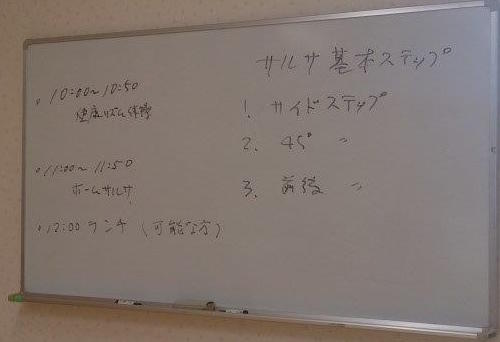 ・10:00~10:50
健康リズム体操
・11:00~11:50
ホームサルサ
・12:00 ランチ (可能な方)
サルサ基本ステップ
1. サイドステップ
2. 45° 〃
3. 前後 〃